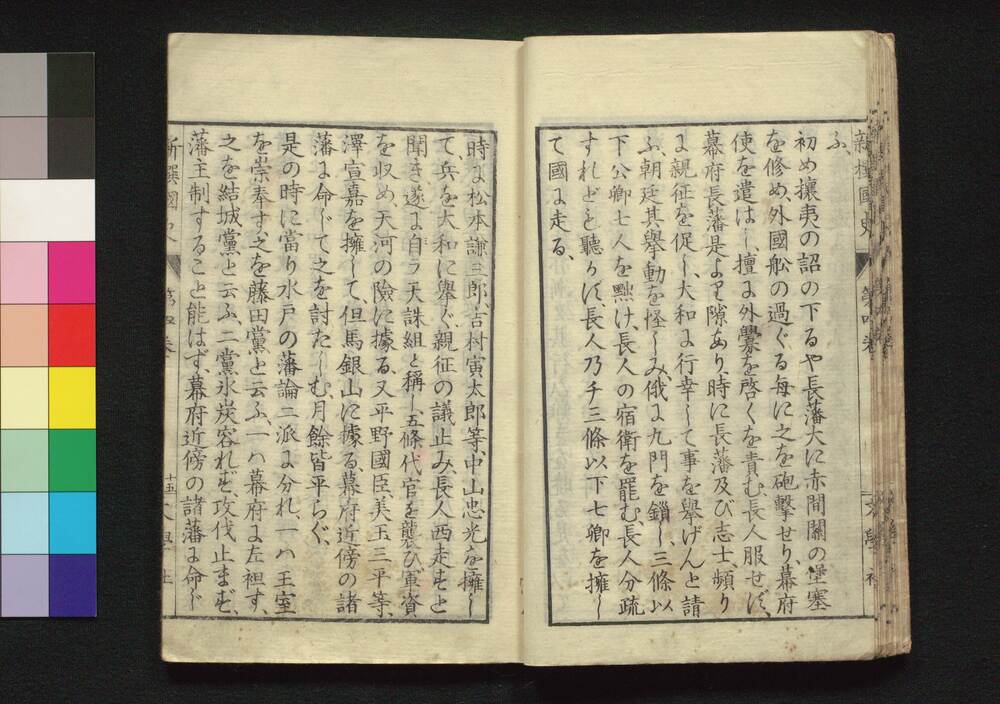 ふ、
初め攘夷の詔の下るや長藩大に赤間關の堡塞
を修め、外國舩の過ぐる毎に之を砲擊せり、幕府
使を遣はし、擅に外釁を啓くを責む、長人服せず、
幕府長藩是より隙あり、時に長藩及び志士、頻り
に親征を促し、大和に行幸して事を擧げんと請
ふ、朝廷其擧動を怪しみ、俄に九門を鎖し、三條以
下公卿七人を黜け、長人の宿衛を罷む、長人分疏
すれども聽かず、長人乃チ三條以下七卿を擁し
て國に走る、
時に松本謙三郎、吉村寅太郎等、中山忠光を擁し
て、兵を大和に擧ぐ、親征の議止み、長人西走すと
聞き遂に自ラ天誅組と稱し、五條代官を襲ひ軍資
を収め、天河の險に據る、又平野國臣、美玉三平等、
澤宣嘉を擁して、但馬銀山に據る、幕府近傍の諸
藩に命じて之を討たしむ、月餘皆平らぐ、
是の時に當り水戸の藩論二派に分れ、一ハ王室
を崇奉す、之を藤田黨と云ふ、一ハ幕府に左袒す、
之を結城黨と云ふ二黨氷炭容れず、攻伐止まず、
藩主制すること能はず、幕府近傍の諸藩に命じ
新撰國史 第四卷 十五 文學社